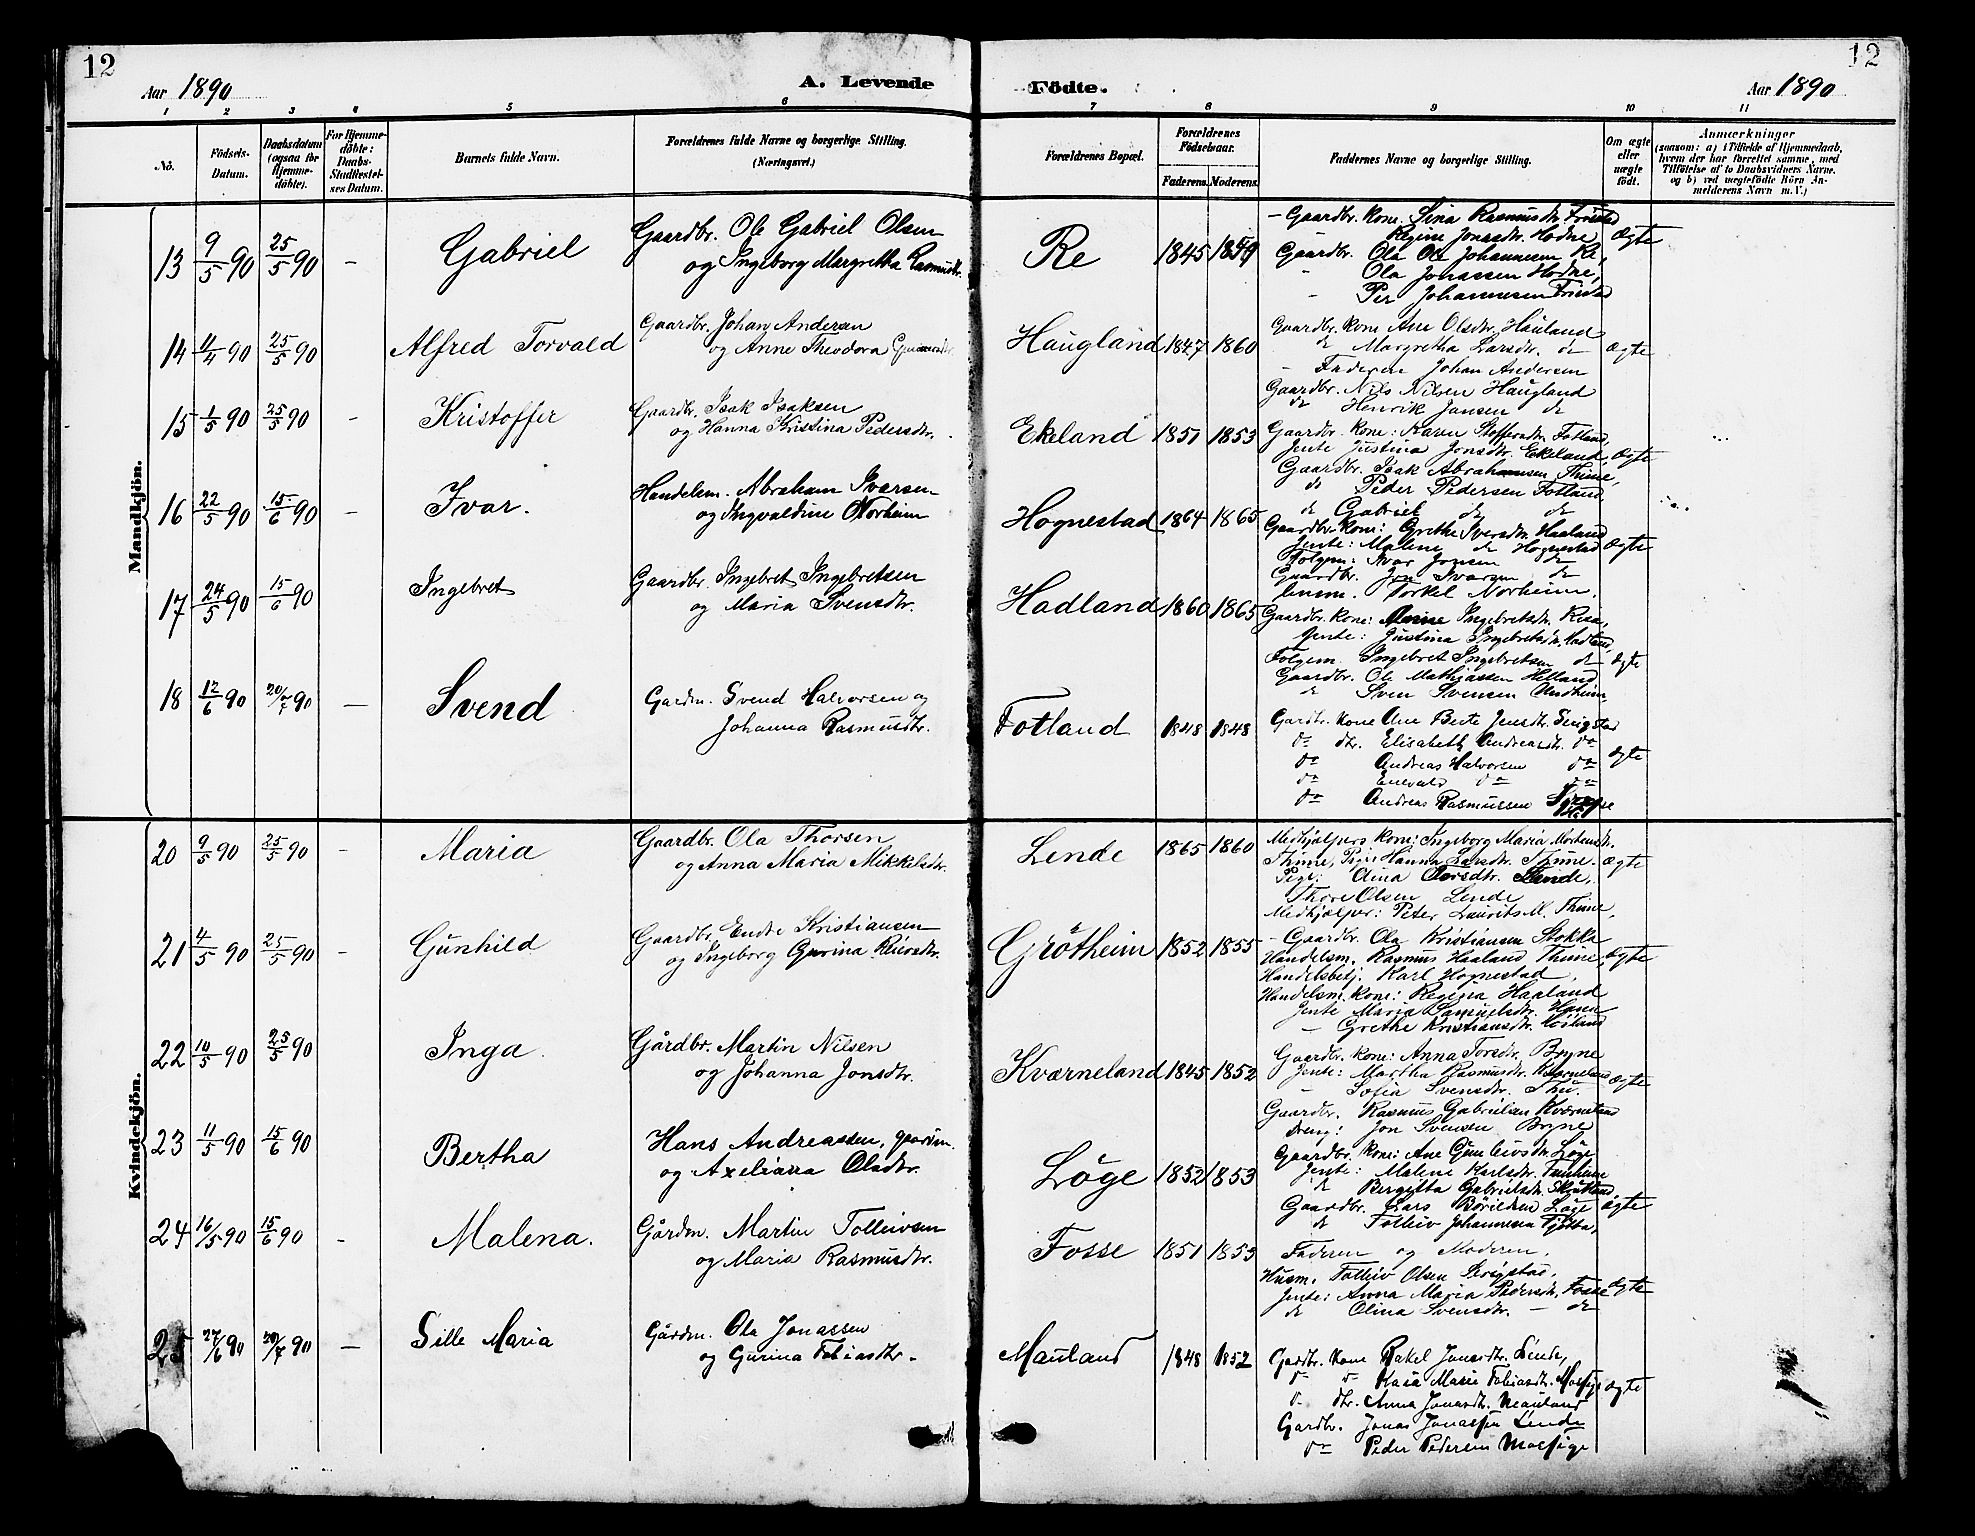 12
Aar 1890
A. Levende
Födte.
Aar 1890
12
1 2 3 4 5 6 7 8 9 10 11
No.
Födsels-Datum.
Daabsdatum (ogsaa for Hjemme-döbte).
For Hjemme-döbte: Daabs-Stadfæstel-ses Datum.
Barnets fulde Navn.
Forældrenes fulde Navne og borgerlige Stilling. (Næringsvei.)
Forældrenes Bopæl.
Forældrenes Födselsaar.
Faderens. Moderens.
Faddernes Navne og borgerlige Stilling.
Om ægte eller uægte födt.
Anmærkninger
(saasom: a) i Tilfælde af Hjemmedaab, hvem der har forrettet samme, med Tilföielse af to Daabsvidners Navne, og b) ved uægtefödte Börn An-melderens Navn m. V.)
Mandkjön.
13 9/5 90 25/5 90 – Gabriel
Gaardbr. Ole Gabriel Olsen
og Ingeborg Margretha Rasmusdtr.
Re 1845 1859
– Gaardbr. kone. Sina Rasmusdtr. Friestad
Regine Jonasdtr. Hodne
Gaardbr. Ola Olsen Johannesen Re,
Ola Jonassen Hodne,
Per Johannesen Friestad
Ægte
14 11/4 90 25/5 90 Alfred Torvald
Gaardbr. Johan Andersen
og Anne Theodora
Haugland 1847 1860
Gaardbr. kone Ane Olsdtr. Hauland
do Margretha Larsdtr. do
– Faderen Johan Andersen
Gaardbr. Nils Nilsen Haugland
do Henrik Jansen do
Ægte
15 1/5 90 25/5 90 – Kristoffer
Gaardbr. Isak Isaksen
og Hanna Kristina Pedersdtr.
Ekeland 1851 1853
Gaardbr. kone: Karen Stoffersdtr. Fotland,
Jente Justina Jonsdtr. Ekeland,
Gaardbr. Isak Abrahamsen Thime,
do Peder Pedersen Fotland
do Gabriel do do
Ægte
16 22/5 90 15/6 90 – Ivar.
Handelsm. Abraham Ivarsen
og Ingvaldine Norheim
Hognestad 1864 1865
Gaardbr. kone: Grethe Iversdtr. Haaland
Jente: Malene do Hognestad
Folgem: Ivar Jonsen do
Gaardbr. Jon Ivarsen do
Torkel Norheim.
Ægte
17 24/5 90 15/6 90 Ingebret
Gaardbr. Ingebret Ingebretsen
og Maria Svensdtr.
Hadland 1860 1865
Gaardbr. kone: Ingebretsdtr. Risa,
Jente: Justina Ingebretsdtr. Hadland,
Folgem. Ingebret Ingebretsen do
Gaardbr. Ole Mathiassen
do Sven Svensen
Ægte
18 12/6 90 20/7 90 – Svend
Gardm. Svend Halvorsen og
Johanna Rasmusdtr.
Fotland 1848 1848
Gardbr. kone Ane Berte Jensdtr. Serigstad
do dtr. Elisabeth Andreasdtr. do
do Andreas Halvorsen do
do Enevald do do
do Andreas Rasmussen
Ægte
Kvindekjön.
20 9/5 90 25/5 90 – Maria
Gaardbr. Ola Thorsen
og Anna Maria Mikkelsdtr.
Lende 1865 1860
Medhjælpers kone: Ingeborg Maria Mortensdtr.
Thime, Pige Hanna Larsdtr. Thime.
Pige: Olina Lende,
Thore Olsen Lende
Medhjælper: Peter Laurits M. Thime,
Ægte
21 4/5 90 25/5 90 – Gunhild
Gaardbr. Endre Kristiansen
og Ingeborg Gurina
Grötheim 1852 1855
– Gaardbr. Ola Kristiansen Stokka
Handelsm. Rasmus Haaland Thime,
Handelsbetj. Karl Hognestad,
Handelsm. kone: Regina Haaland
Jente Maria Samuelsdtr. Haaa
– Grethe Kristiansdtr. Høiland
Ægte
22 10/5 90 25/5 90 Inga.
Gårdbr. Martin Nilsen
og Johanna Jonsdtr.
Kværneland 1845 1852
Gaardbr. kone: Anna Torsdtr. Bryne
Jente: Martha Rasmusdtr. Kværneland
– Sofia Svensdtr. Thu.
Gaardbr. Rasmus Gabrielsen Kværneland
Dreng: Jon Svensen Bryne
Ægte
23 11/5 90 15/6 90 Bertha
Hans Andreassen, gaardm.
og Axeliana Olsdtr.
Löge 1852 1853
Gaardbr. kone: Ane Gunleivsdtr. Löge
Jente: Malene Karlsdtr.
do Bergitta Gabrielsdtr.
Gaardbr. Lars Löge
do Tolleiv Johannesen
Ægte
24 16/5 90 15/6 90 – Malena.
Gårdm. Martin Tolleivsen
og Maria Rasmusdtr.
Fosse 1851 1853
Faderen og Moderen.
Husm. Tolleiv Olsen Serigstad,
Jente: Anna Maria Pedersdtr. Fosse
do Olina Svensdtr. – do
Ægte
25 27/6 90 20/7 90 – Sille Maria
Gårdm. Ola Jonassen
og Gurina Tobiasdtr.
Mauland 1848 1852
Gardbr. kone Rakel Jonasdtr. Lende,
do do Kaia Marie Tobiasdtr. Mossige
do dtr. Anna Jonasdtr. Mauland
Gardbr. Jonas Jonassen Lende
do Peder Pedersen Mossige
Ægte